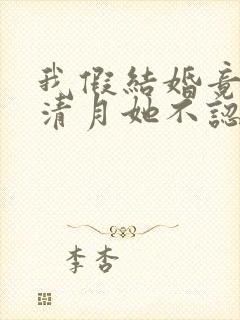 我假結婚竟
清月她不認
李杏